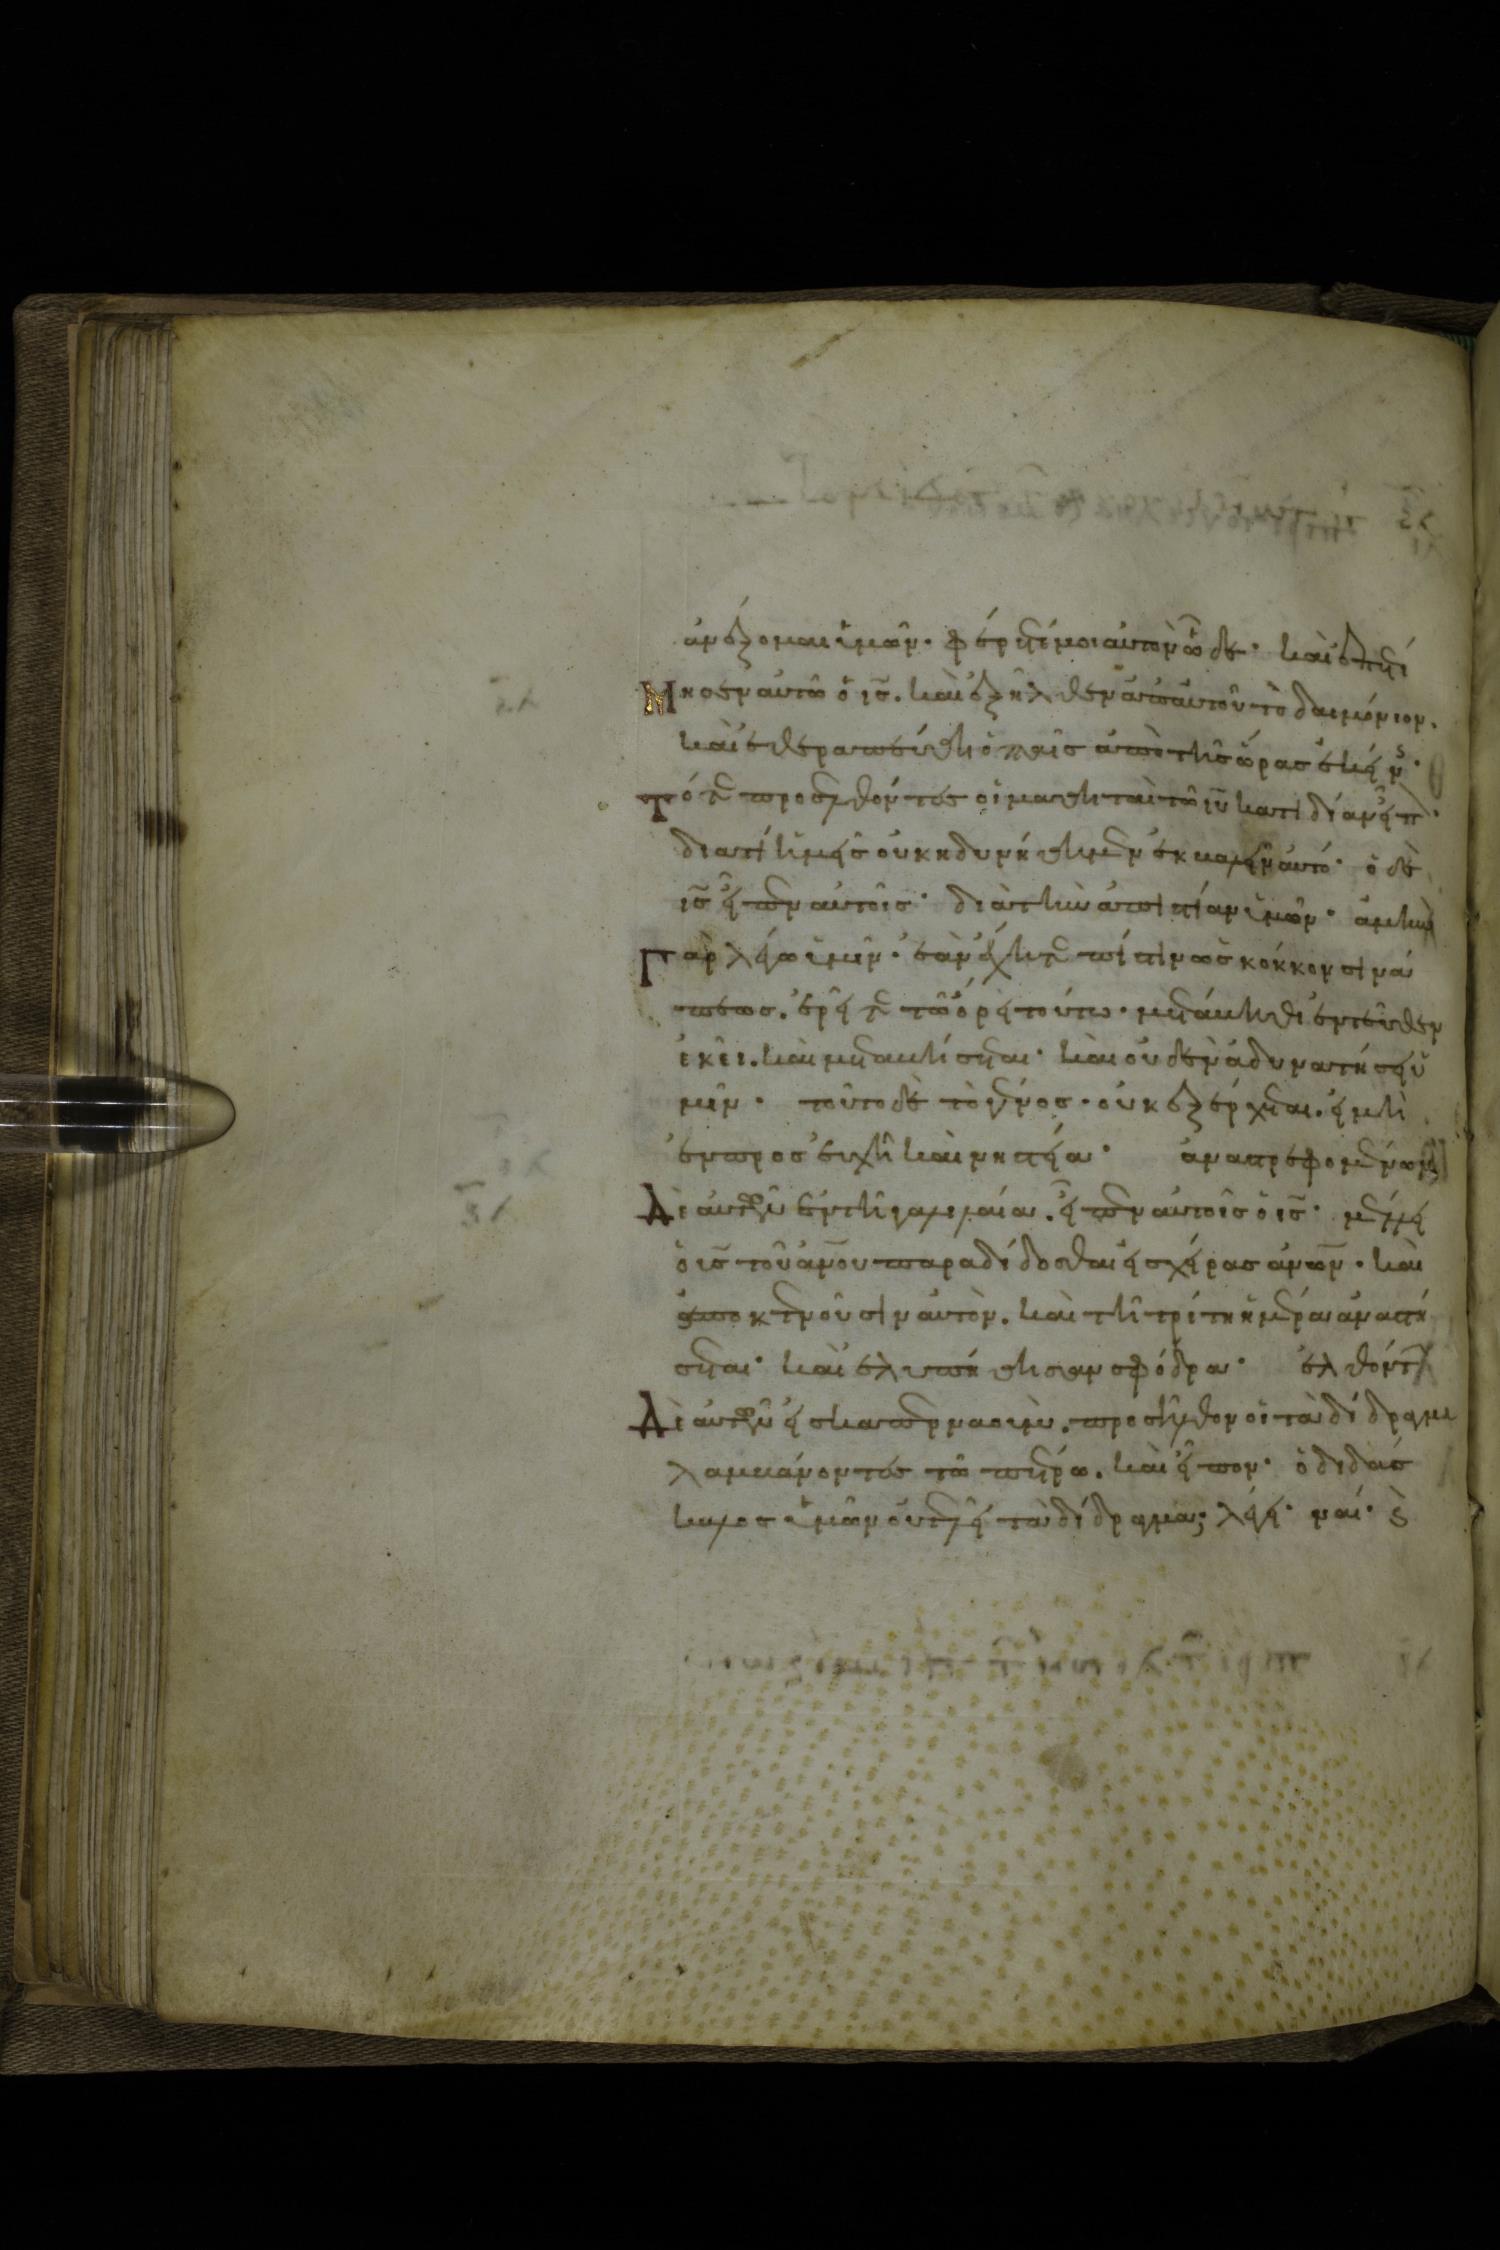 ἀνέξομαι ὑμῶν· φέρετέ μοι αὐτὸν ὧδε· καὶ ἐπετί
μησεν αὐτῶ ὁ ις̅· καὶ ἐξῆλθεν ἀπ' αὐτοῦ τὸ δαιμόνιον·
καὶ ἐθεραπεύθη ὁ παῖς ἀπὸ τῆς ὥρας ἐκείνς·
τότε προσελθόντες οἱ μαθηταὶ τῶ ιυ̅ κατιδίαν εἶπ·
διατί ἡμεῖς οὐκ ηδυνήθημεν ἐκβαλεῖν αὐτό· ὁ δὲ
ις̅ εἶπεν αὐτοῖς· διὰ τὴν ἀπιστίαν ὑμῶν· ἀμὴν
γὰρ λέγω ὑμῖν· ἐὰν ἔχητε πίστιν ὡς κόκκον σινά
πεως· ἐρεῖτε τῶ ὄρει τούτω· μετάβηθι ἐντεῦθεν
ἐκεῖ· καὶ μεταβήσεται· καὶ οὐδὲν ἀδυνατήσει ὑ
μῖν· τοῦτο δὲ τὸ γένος· οὐκ ἐξέρχεται· εἰ μὴ
ἐν προσευχῆ καὶ νηστεία· ἀναστρεφομένων
δὲ αὐτῶν ἐν τῆ γαλιλαία· εἶπεν αὐτοῖς ὁ ις̅· μέλλει
ὁ υς̅ τοῦ ἀν̅ου παραδίδοσθαι εἰς χεῖρας ἀνων̅· καὶ
ἀποκτενοῦσιν αὐτὸν· καὶ τῆ τρίτη ἡμέρα ἀναστή
σεται· καὶ ἐλυπήθησαν σφόδρα· ἐλθόντ
δὲ αὐτῶν εἰς καπερναοὺμ· προσῆλθον οἱ τὰ δίδραχμα
λαμβάνοντες τῶ πέτρω· καὶ εἶπον· ὁ διδάσ
καλος ὑμῶν οὐ τελεῖ τὰ δίδραχμα; λέγει· ναί· ϗ